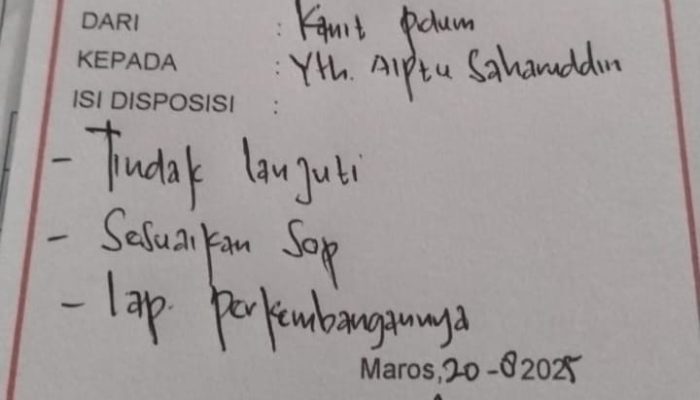 DARI : Kanit Pidum
KEPADA : Yth. AIPTU Saharuddin
ISI DISPOSISI :
- Tindak lanjuti
- Sesuaikan Sop
- lap. perkembangannya
Maros, 20-8 2025